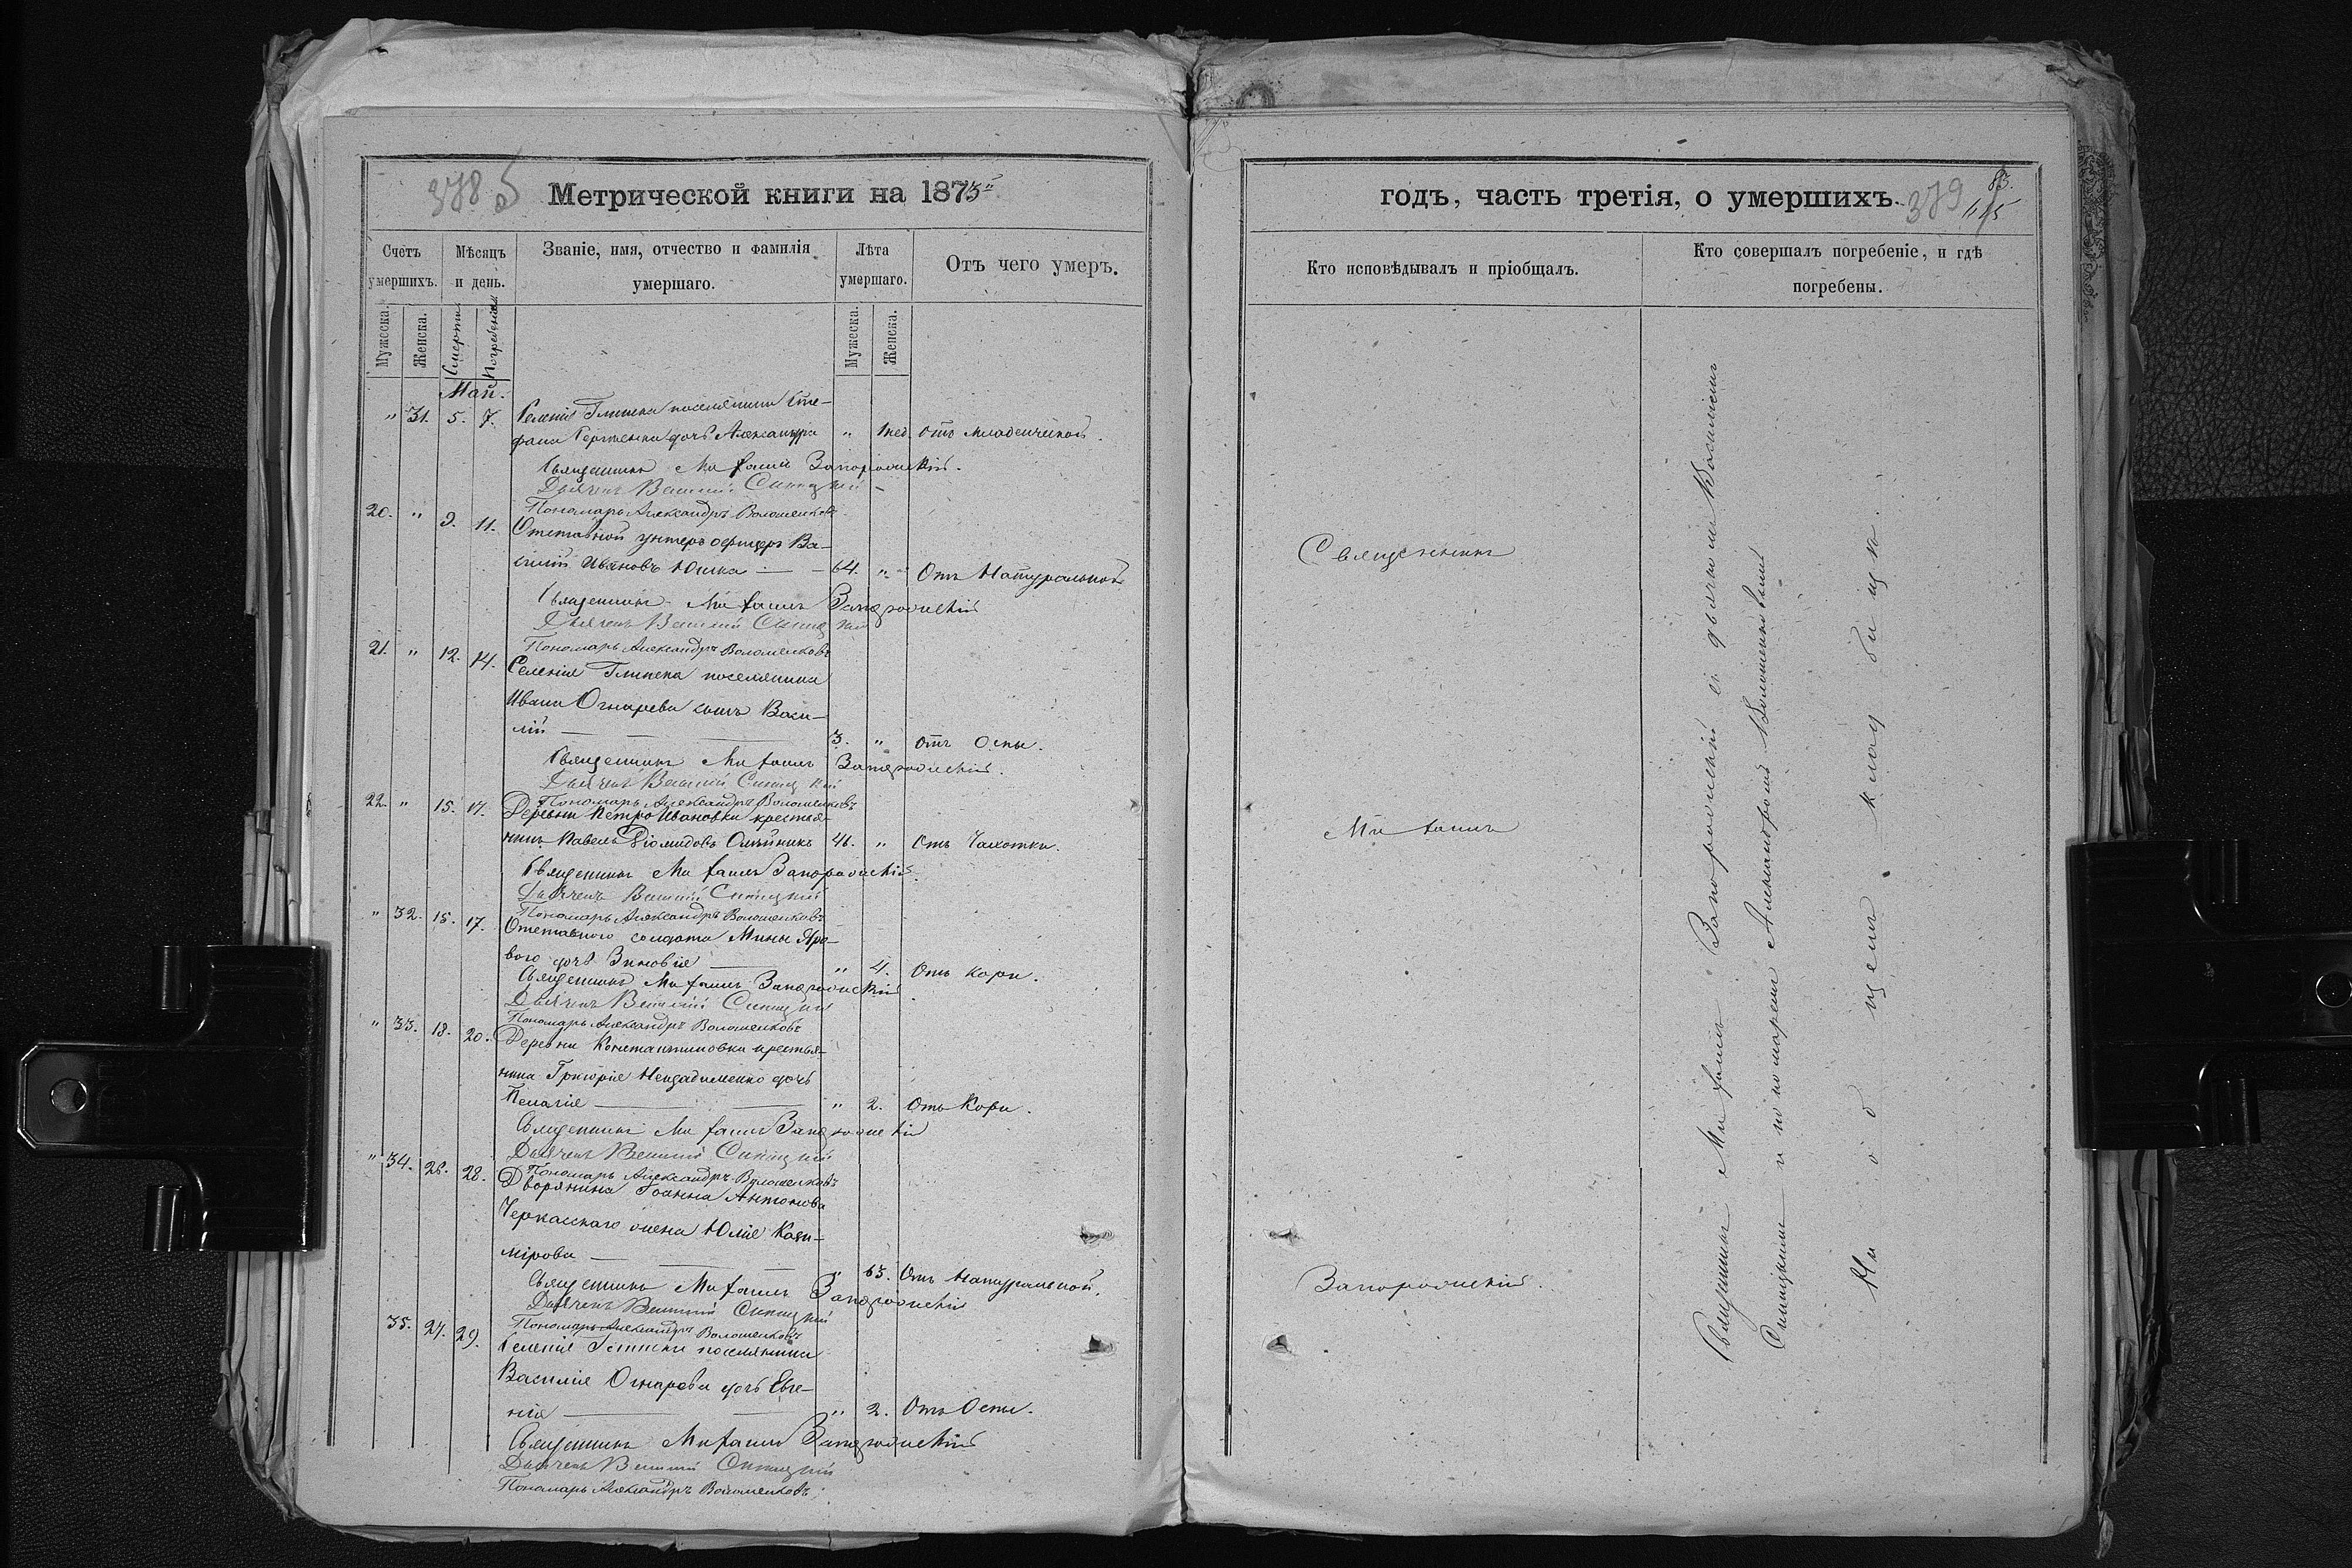 378 б
Метрической книги на 1875"
Счетъ умершихъ.
Мѣсяцъ и день.
Званіе, имя, отчество и фамилія умершаго.
Лѣта умершаго.
Отъ чего умеръ.
Мужеска.
Женска.
Смерти
Погребенія
Мужеска.
Женска.
Май.
" 31. 5. 7. Селенія Глинска поселянина Сте-
фана дочь Александра " 1 нед. отъ младенческой.
Священникъ Михаилъ Запорожскій.
Дьячекъ Василій Синицкій
Пономарь Александръ Волошенковъ
20. " 9. 11. Отставной унтеръ офицеръ Ва-
силій Ивановъ Юшка — 64. " Отъ Натуральной
Священникъ Михаилъ Запорожскій
Дьячекъ Василій Синицкій
Пономарь Александръ Волошенковъ
21. " 12. 14. Селенія Глинска поселянина
Ивана Огнарева сынъ Васи-
лій — 3. " отъ Оспы.
Священникъ Михаилъ Запорожскій.
Дьячекъ Василій Синицкій
Пономарь Александръ Волошенковъ
22. " 15. 17. Деревни Петроивановки крестья-
нинъ Павелъ Діомидовъ Олейникъ 46. " Отъ Чахотки.
Священникъ Михаилъ Запорожскій.
Дьячекъ Василій Синицкій
Пономарь Александръ Волошенковъ
" 32. 15. 17. Отставного солдата Мины Яро-
вого дочь Зиновія — " 4. Отъ кори.
Священникъ Михаилъ Запорожскій
Дьячекъ Василій Синицкій
Пономарь Александръ Волошенковъ
" 33. 18. 20. Деревни Константиновки крестья-
нина Григорія дочь
Пелагія — " 2. Отъ Кори.
Священникъ Михаилъ Запорожскій
Дьячекъ Василій Синицкій
Пономарь Александръ Волошенковъ
" 34. 26. 28. Дворянина Іоанна Антонова
Черкасскаго жена Юлія Кази-
мірова — " 65. Отъ Натуральной.
Священникъ Михаилъ Запорожскій
Дьячекъ Василій Синицкій
Пономарь Александръ Волошенковъ
35. 27. 29. Селенія Глинска поселянина
Василія Огнарева дочь Евге-
нія — " 2. Отъ Оспы.
Священникъ Михаилъ Запорожскій
Дьячекъ Василій Синицкій
Пономарь Александръ Волошенковъ
годъ, часть третія, о умершихъ.
379
83.
Кто исповѣдывалъ и пріобщалъ.
Кто совершалъ погребеніе, и гдѣ погребены.
Священникъ
Михаилъ
Запорожскій.
Священникъ Михаилъ Запорожскій съ дьячкомъ Василіемъ
Синицкимъ и пономаремъ Александромъ Волошенковымъ
На общемъ кладбищѣ.